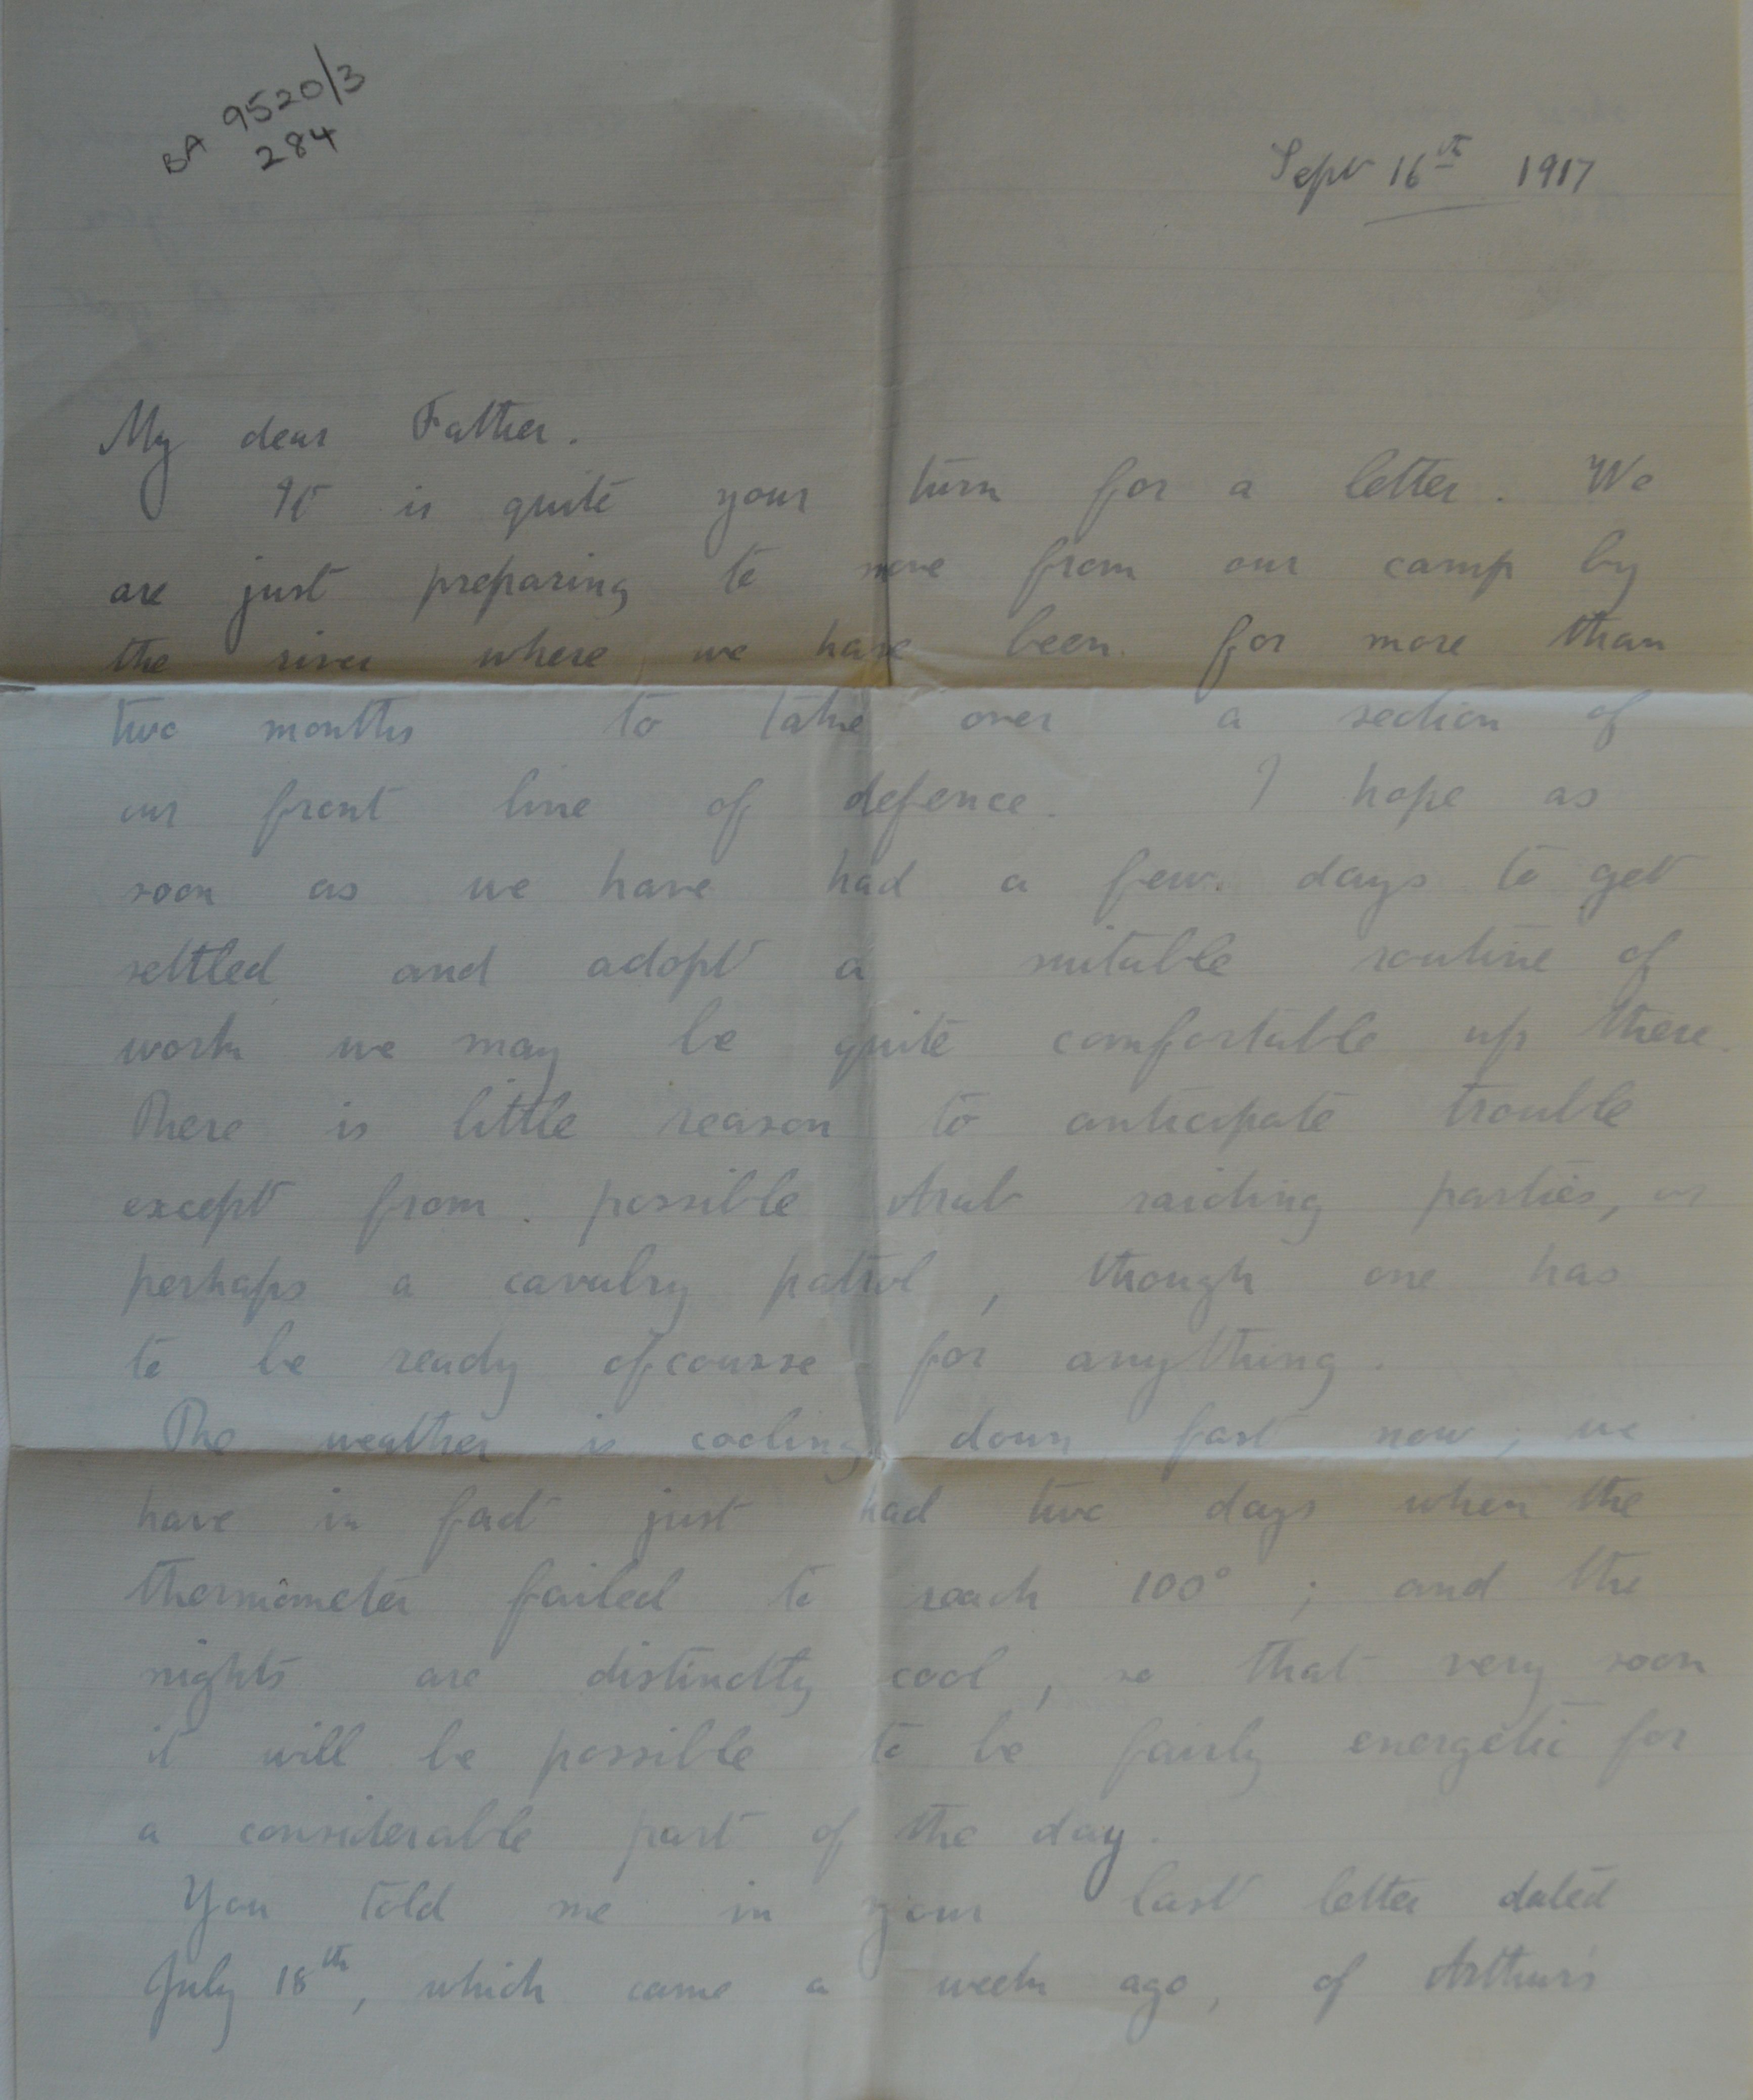 BA 9520/3
284
Sept 16th 1917
My dear Father.
It is quite your turn for a letter. We
are just preparing to move from our camp by
the river where we have been for more than
two months to take over a section of
our front line of defence. I hope as
soon as we have had a few days to get
settled and adopt a suitable routine of
work we may be quite comfortable up there.
There is little reason to anticipate trouble
except from possible Arab raiding parties, or
perhaps a cavalry patrol, though one has
to be ready ofcourse for anything.
The weather is cooling down fast now; we
have in fact just had two days when the
thermometer failed to reach 100°; and the
nights are distinctly cool, so that very soon
it will be possible to be fairly energetic for
a considerable part of the day.
You told me in your last letter dated
July 18th, which came a week ago, of Arthur's